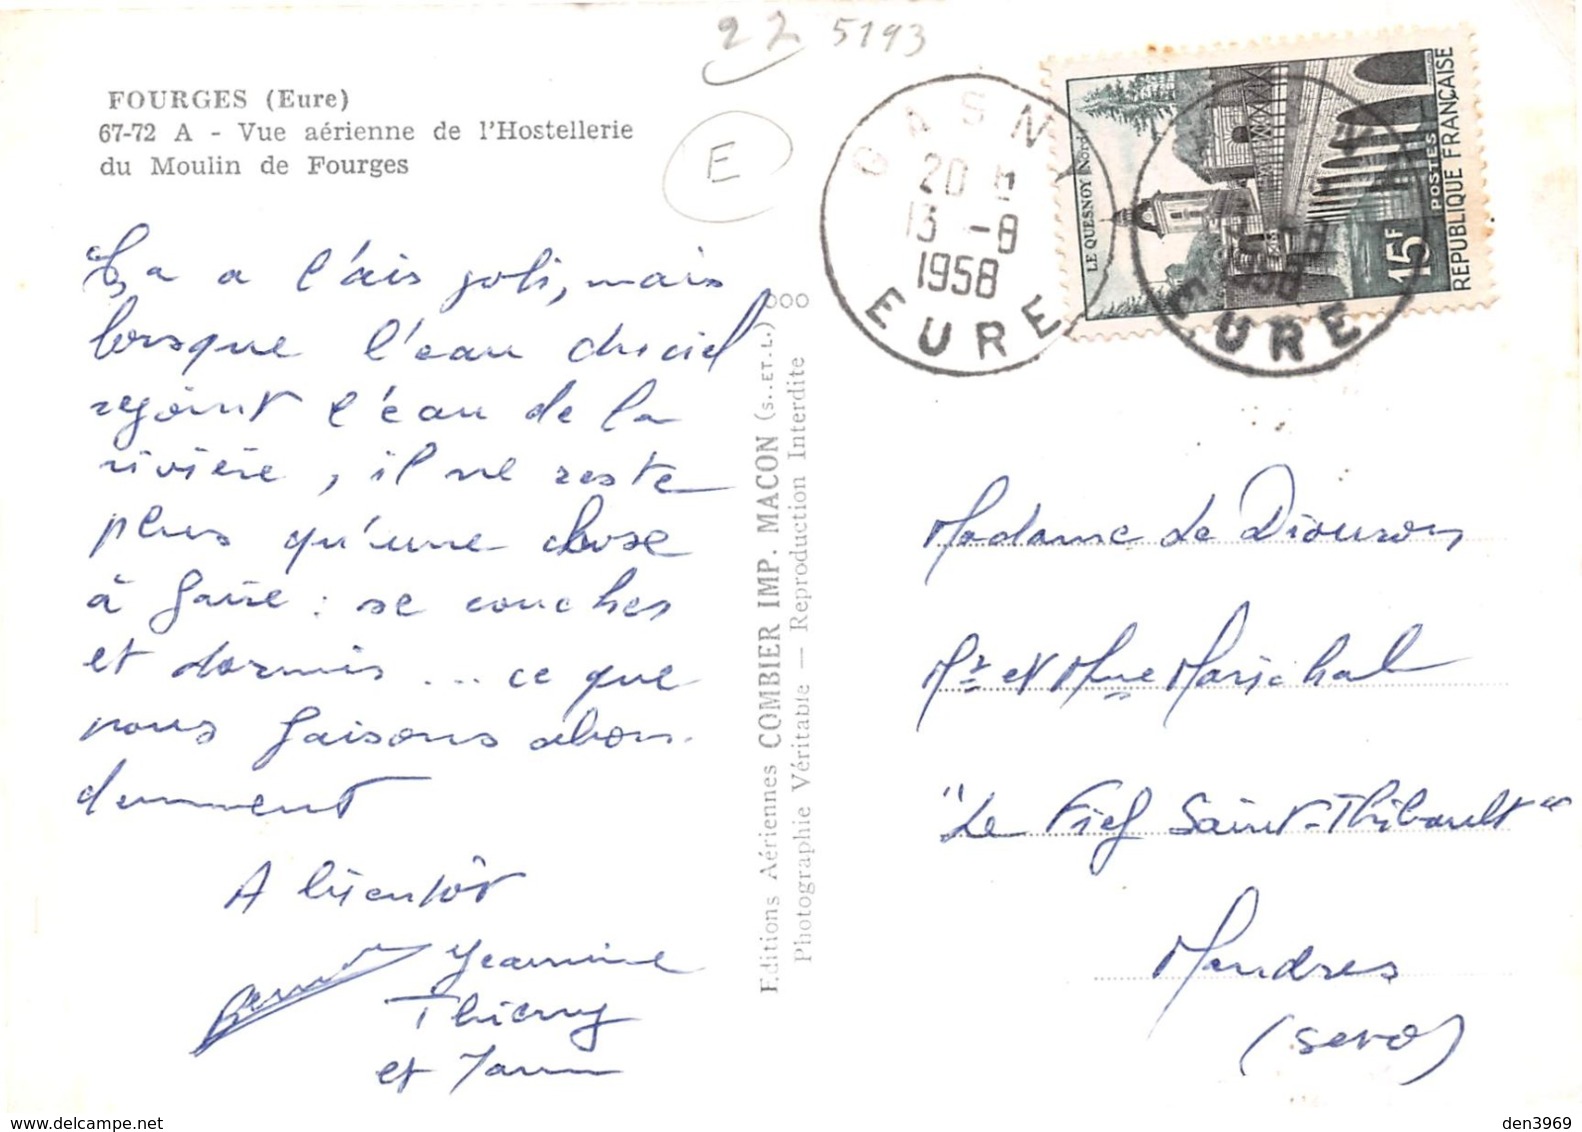 22 5193
E
FOURGES (Eure)
67-72 A - Vue aérienne de l'Hostellerie
du Moulin de Fourges
Ça a l'air joli, mais
lorsque l'eau du ciel
rejoint l'eau de la
rivière, il ne reste
plus qu'une chose
à faire : se coucher
et dormir ... ce que
nous faisons abon-
damment
A bientôt
Jeannine
Thierry
et Yann
Editions Aériennes COMBIER IMP. MACON (S.-ET-L.)
Photographie Véritable — Reproduction Interdite
GASNY
20 H
13 -8
1958
EURE
EURE
LE QUESNOY (Nord)
15F
POSTES
REPUBLIQUE FRANÇAISE
Madame Le
Mr et Mme Maréchal
"Le Fief Saint-Thibault"
Mandres
(S et O)
den3969